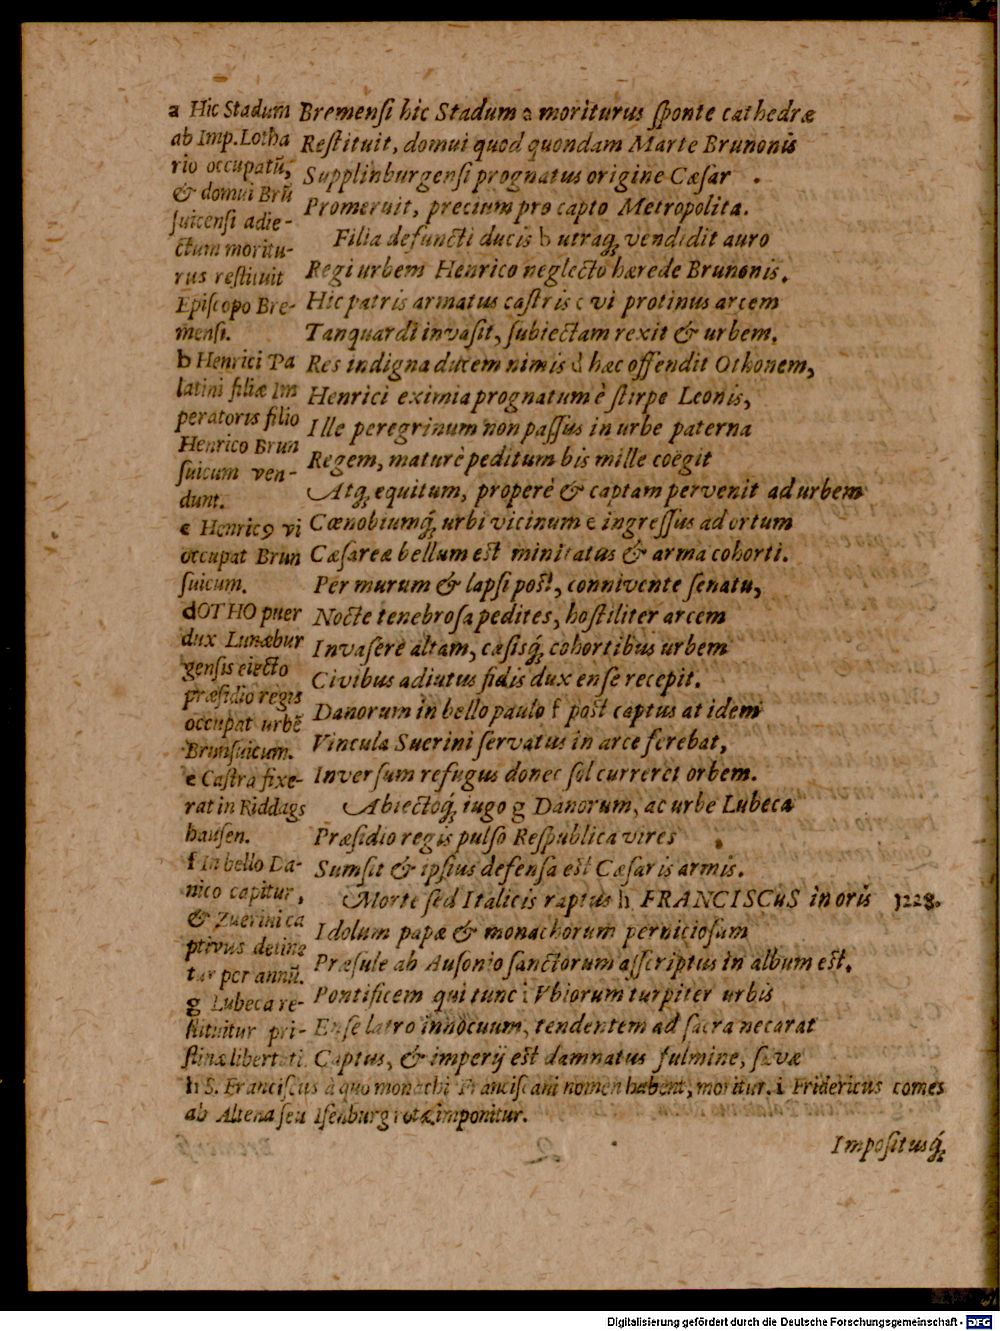 a Hic Stadum
ab Imp. Lotha
rio occupatũ,
& domui Brũ
ſuicenſi adie-
ctum moritu-
rus reſtituit
Epiſcopo Bre-
menſi.
b Henrici Pa
latini filiæ Im
peratoris filio
Henrico Brun
ſuicum ven-
dunt.
c Henricꝰ vi
occupat Brun
ſuicum.
d OTHO puer
dux Lunæbur
genſis eiecto
præſidio regis
occupat urbẽ
Brunſuicum.
e Caſtra fixe-
rat in Riddags
hauſen.
f In bello Da-
nico capitur,
& Zuerini ca
ptivus detine
tur per annũ.
g Lubeca re-
ſtituitur pri-
ſtinæ libertati.
Bremenſi hic Stadum a moriturus ſponte cathedræ
Reſtituit, domui quod quondam Marte Brunonis
Supplinburgenſi prognatus origine Cæſar
Promeruit, precium pro capto Metropolita.
Filia defuncti ducis b utraq; vendidit auro
Regi urbem Henrico neglecto hærede Brunonis.
Hic patris armatus caſtris c vi protinus arcem
Tanquardi invaſit, ſubiectam rexit & urbem.
Res indigna ducem nimis d hæc offendit Othonem,
Henrici eximia prognatum è ſtirpe Leonis,
Ille peregrinum non paſſus in urbe paterna
Regem, maturè peditum bis mille coëgit
Atq; equitum, properè & captam pervenit ad urbem
Cœnobiumq́; urbi vicinum e ingreſſus ad ortum
Cæſareæ bellum est minitatus & arma cohorti.
Per murum & lapſi post, connivente ſenatu,
Nocte tenebroſa pedites, hoſtiliter arcem
Invaſere altam, cæſisq́; cohortibus urbem
Civibus adiutus fidis dux enſe recepit.
Danorum in bello paulo f post captus at idem
Vincula Suerini ſervatus in arce ferebat,
Inverſum refugus donec ſol curreret orbem.
Abiectoq́; iugo g Danorum, ac urbe Lubeca
Præſidio regis pulſo Reſpublica vires
Sumſit & ipſius defenſa est Cæſaris armis.
Morte ſed Italicis raptus h FRANCISCuS in oris 1228.
Idolum papæ & monachorum pernicioſum
Præſule ab Auſonio ſanctorum aſſcriptus in album est.
Pontificem qui tunc i Vbiorum turpiter urbis
Enſe latro innocuum, tendentem ad ſacra necarat
Captus, & imperij est damnatus fulmine, ſævæ
h S. Franciſcus à quo monachi Franciſcani nomen habent, moritur. i Fridericus comes
ab Altena ſeu Iſenburg rotæ imponitur.
Impoſitusq́;
Digitalisierung gefördert durch die Deutsche Forschungsgemeinschaft - DFG